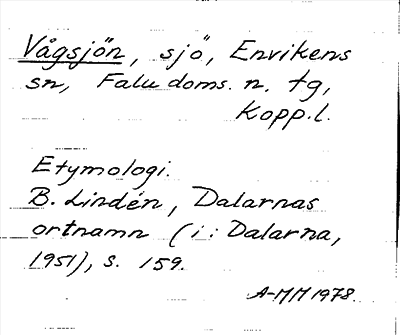 Vågsjön, sjö, Envikens
sn, Falu doms. n. tg,
Kopp.l.
Etymologi.
B. Lindén, Dalarnas
ortnamn (i: Dalarna,
1951), s. 159.
A-MM 1978.